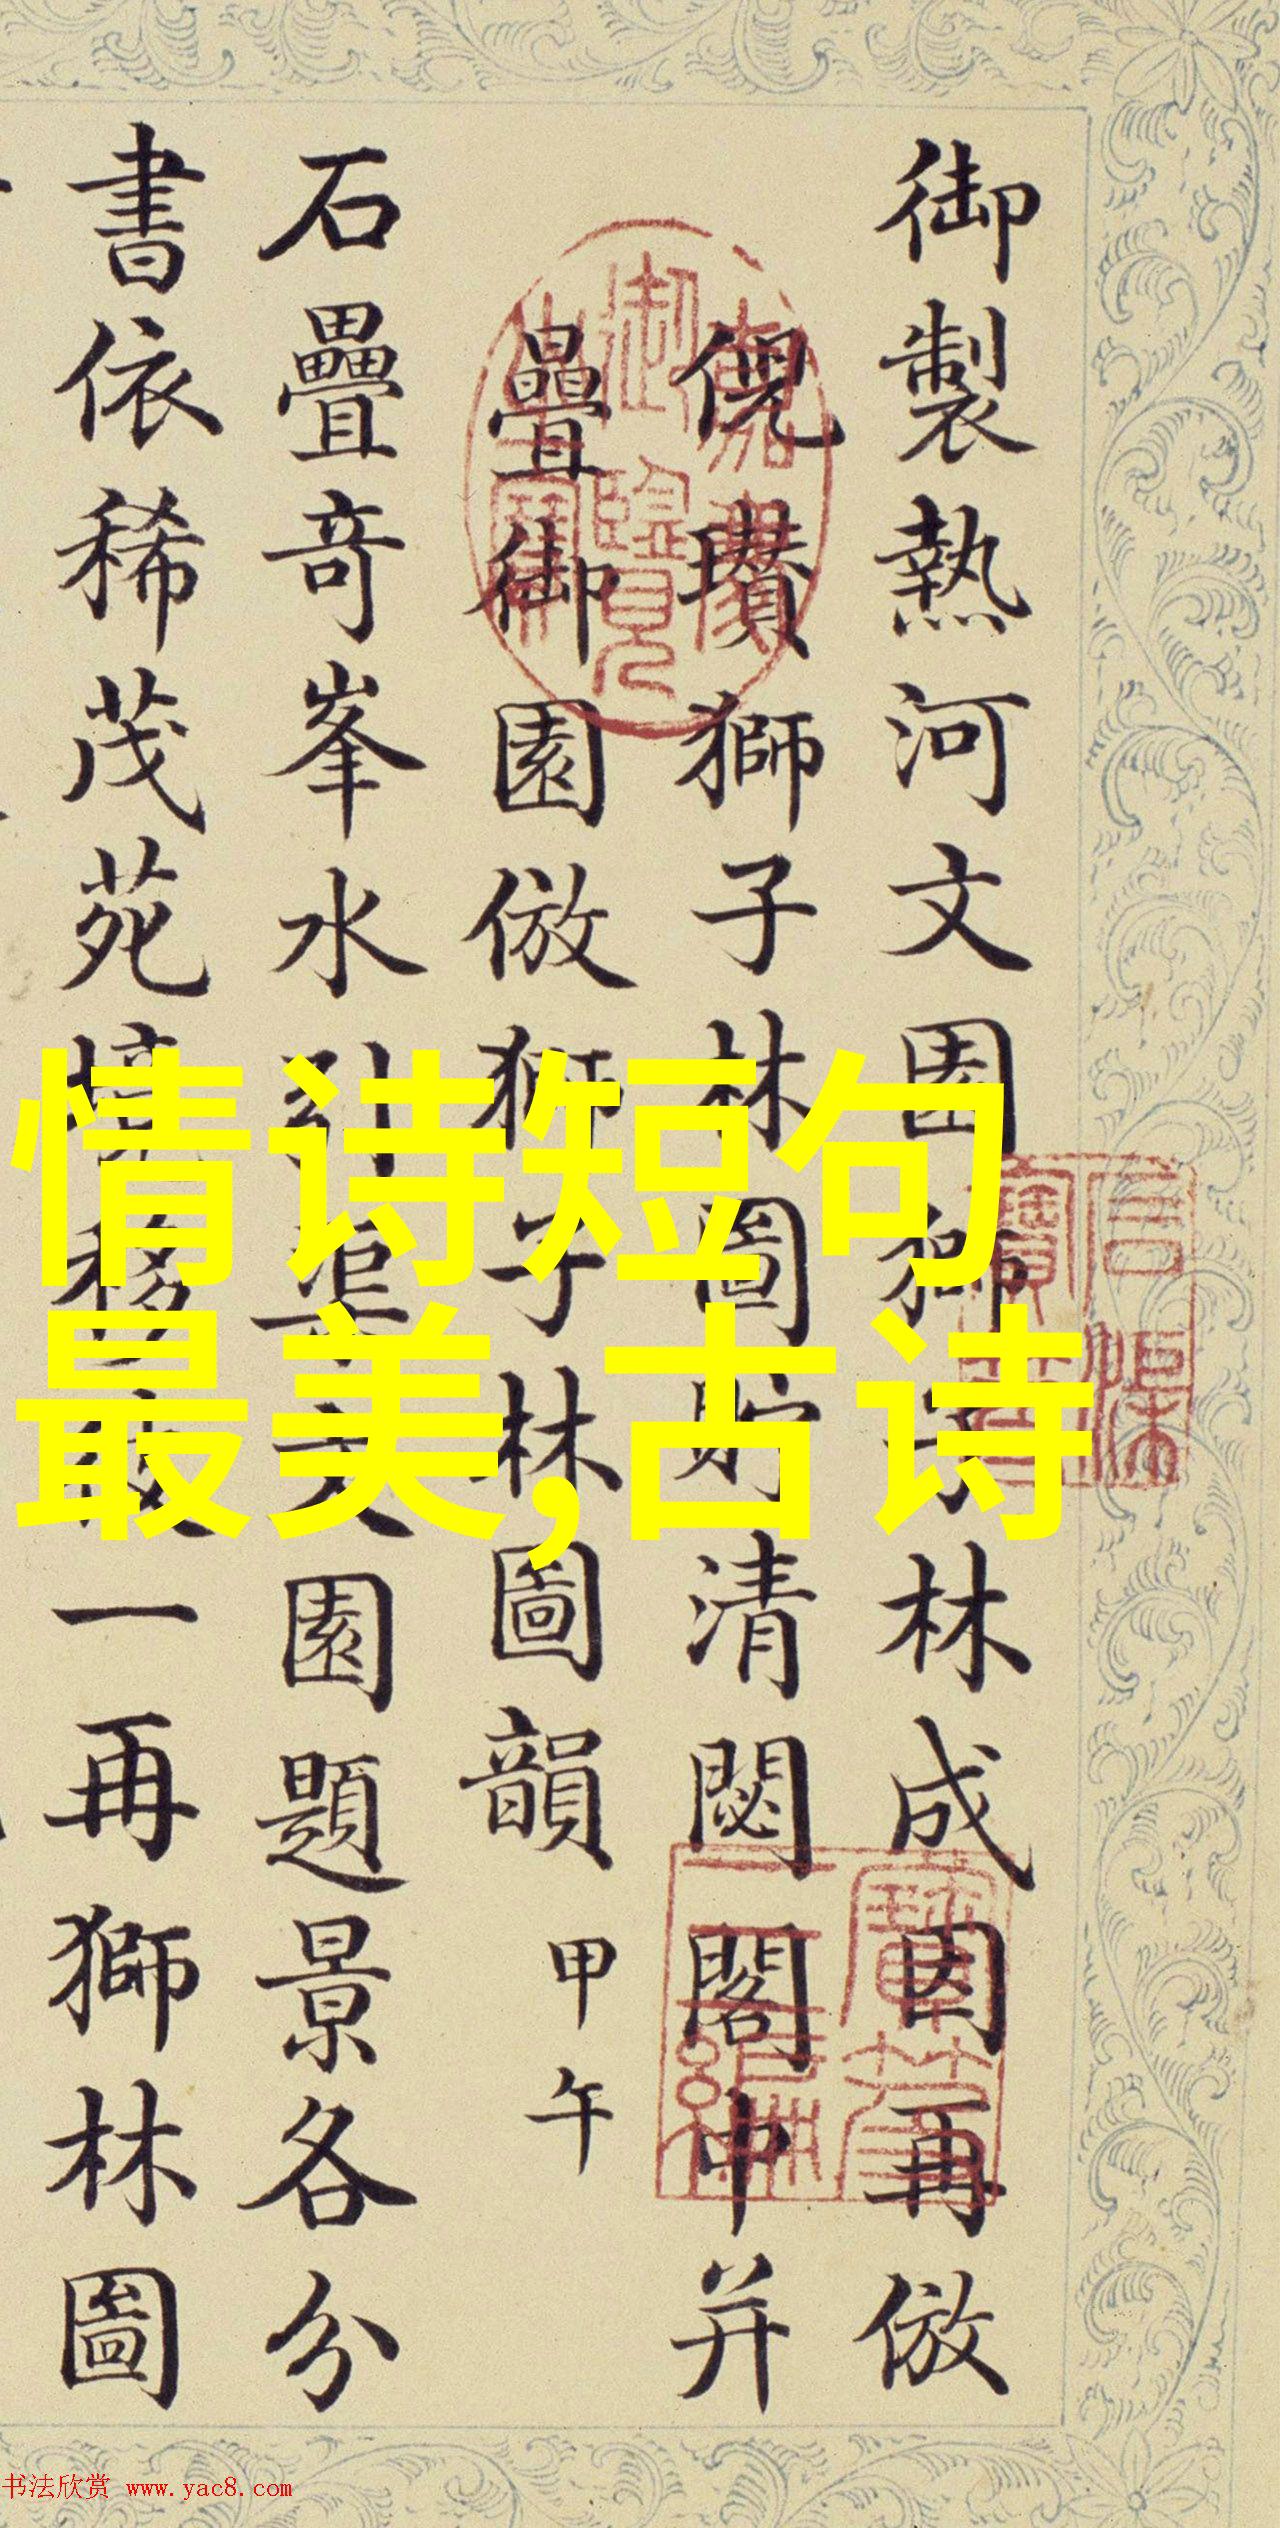 御製熱河文園獅子林成因再倣
倪瓚獅子林圖貯清閟閣中并
疊御園倣獅子林圖韻 甲午
石疊奇峯水引渠文園題景各分
書依稀茂苑境移最一再獅林圖
情诗短句
最美,古诗
书法欣赏 www.yac8.com